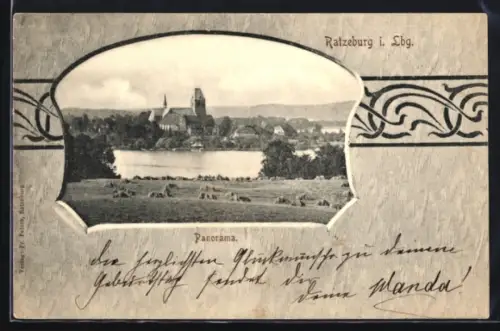 Ratzeburg i. Lbg.
Panorama.
die herzlichsten Glückwünsche zu deinem
Geburtstag sendet dir
deine Wanda!